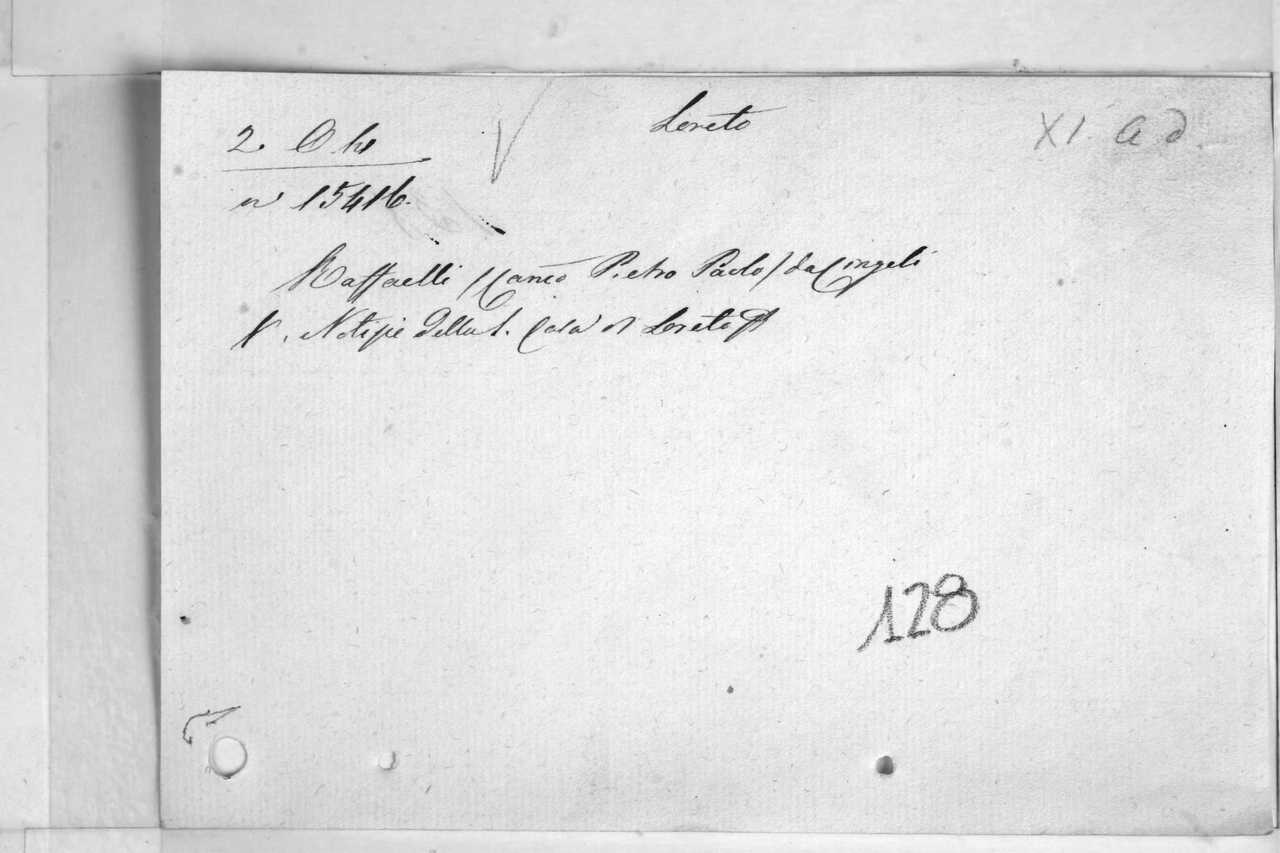 Loreto
XI. a d.
2. O h
n 15416.
Raffaelli /Canco Pietro Paolo/ da Cingoli
V. Notizie della S. Casa di Loreto
128